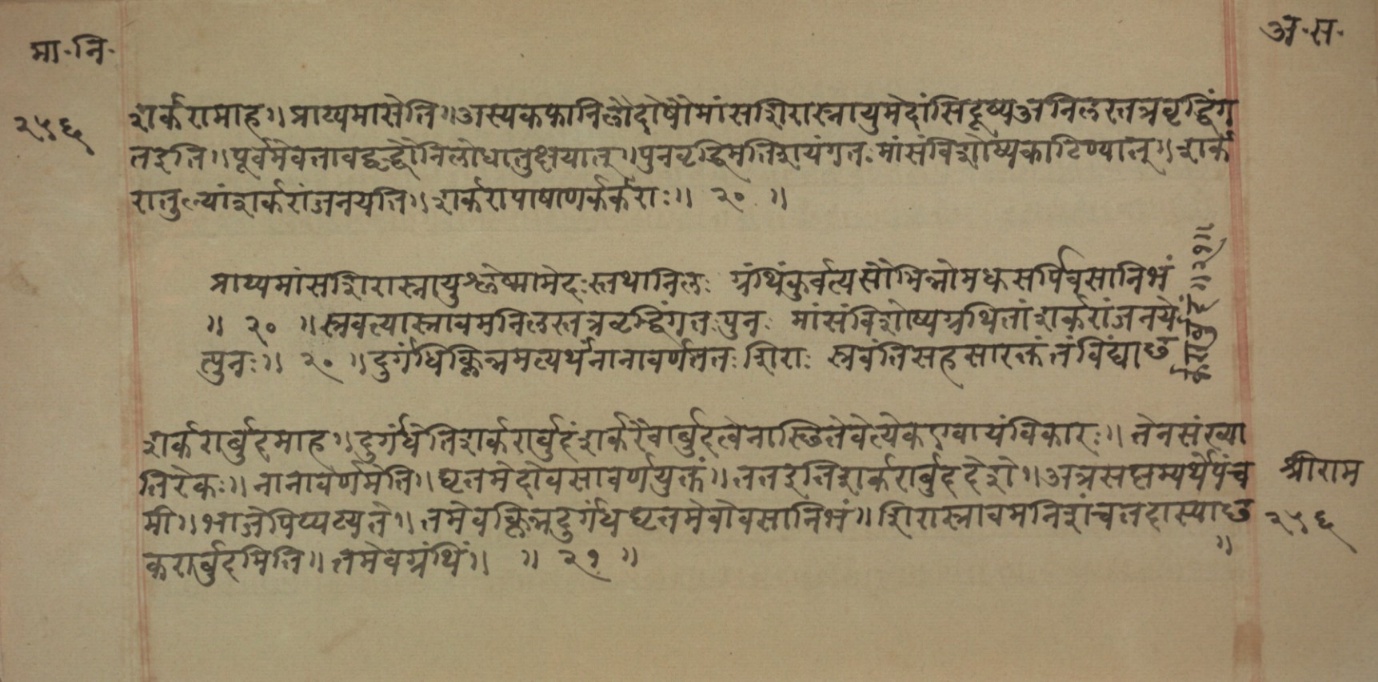 मा॰नि॰
अ॰स॰
२५६
शर्करामाह॥प्राप्यमासेति॥अस्यकफानिलौदोषौमांसशिरास्नायुमेदांसिदूष्यअनिलस्तत्रवृद्धिंग
तइति॥पूर्वमेवतावद्वृद्धोनिलोधातुक्षयात्॥पुनवृद्धिमतिशयंगतःमांसंविशोष्यकाठिण्यात्॥शर्क
रातुल्यांशर्करांजनयति॥शर्करापाषाणर्कर्कराः॥ २० ॥
प्राप्यमांसशिरास्नायुश्लेष्मामेदःस्तथानिलः ग्रंथिंकुर्वत्यसौभिन्नोमधुसर्पिर्वसानिभं
॥ २० ॥स्रवत्यास्रावमनिलस्तत्रवृद्धिंगतःपुनः मांसंविशोष्यग्रथितांशर्करांजनये
त्पुनः॥ २० ॥दुर्गंधिक्लिन्नमत्यर्थंनानावर्णंततः शिराः स्रवंतिसहसारक्तंतंविंद्याछ
र्करार्बुदं॥२१॥
शर्करार्बुदमाह॥दुर्गंधेतिशर्करार्बुदंशर्करैवार्बुदत्वेनास्छितेवेत्येकएवायंविकारः॥ तेनसंख्या
तिरेकः॥ नानावर्णमिति॥घृतमेदोवसावर्णयुक्तं॥ततइतिशर्करार्बुददेशे॥अत्रसप्तम्यर्थेपंच
मी॥भोजेपिप्पट्यते॥तमेवक्लिन्नदुर्गंधघृतमेदोवसानिभं॥शिरास्रावमनिशंचतदास्याछ
र्करार्बुदमिति॥तमेवग्रंथिं॥ ॥ २१ ॥
॥
श्रीराम
२५६